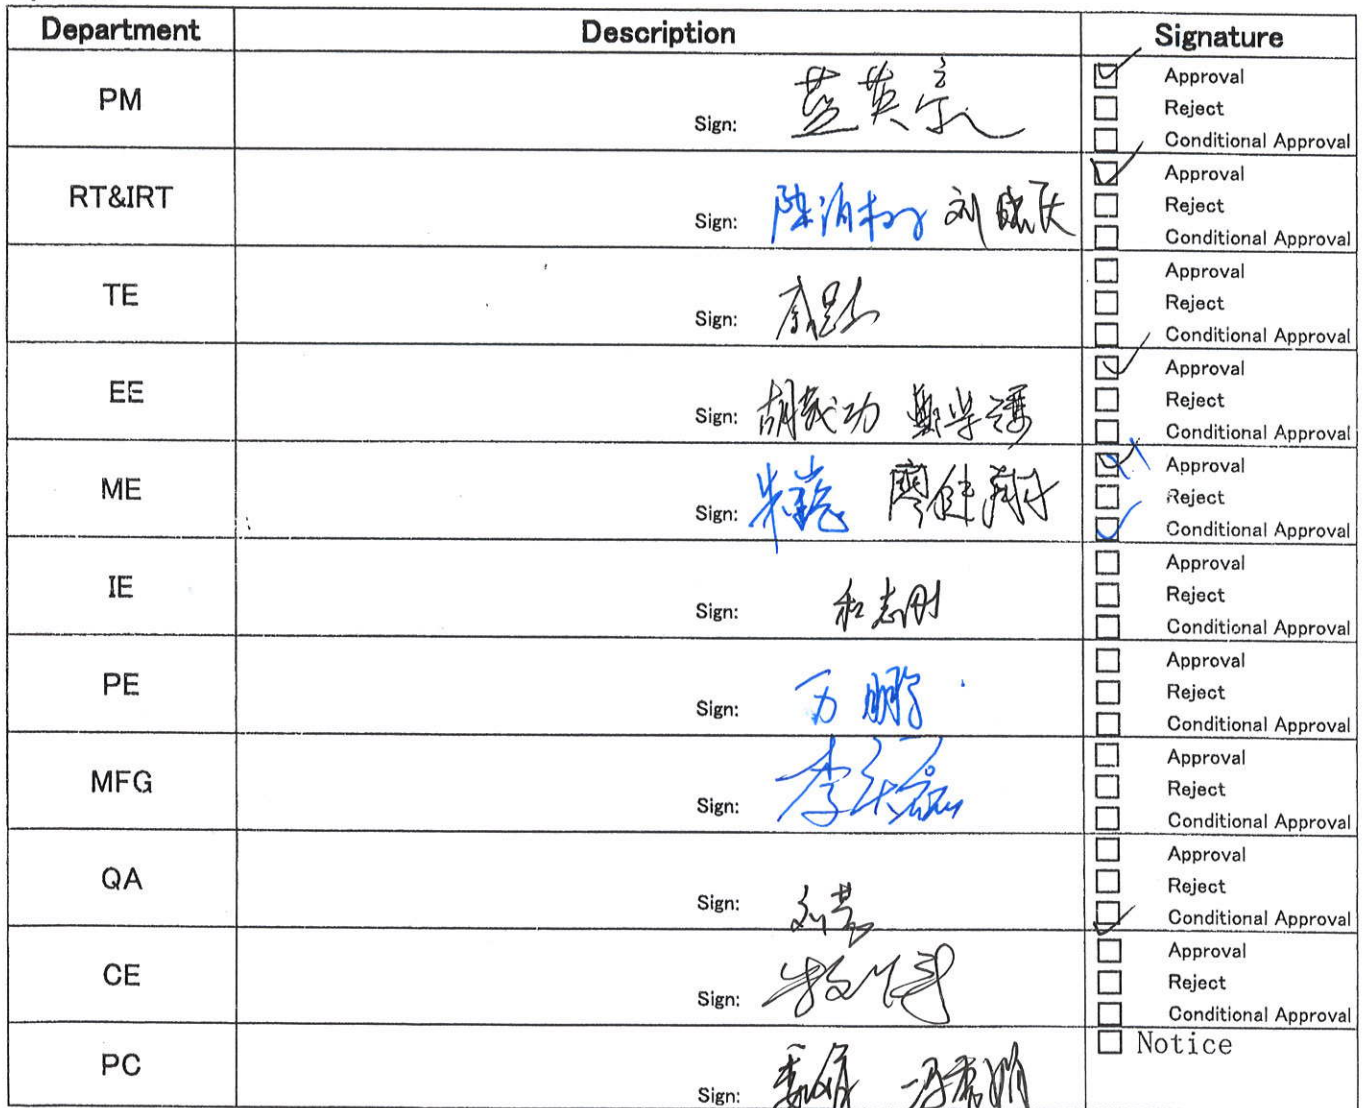 Department Description Signature
PM Sign: 蓝英 Approval
Reject
Conditional Approval
RT&IRT Sign: 刘 Approval
Reject
Conditional Approval
TE Sign: Approval
Reject
Conditional Approval
EE Sign: 胡成功 郑学谦 Approval
Reject
Conditional Approval
ME Sign: 廖健翔 Approval
Reject
Conditional Approval
IE Sign: 和志刚 Approval
Reject
Conditional Approval
PE Sign: 万鹏 Approval
Reject
Conditional Approval
MFG Sign: 李 Approval
Reject
Conditional Approval
QA Sign: 刘 Approval
Reject
Conditional Approval
CE Sign: Approval
Reject
Conditional Approval
PC Sign: Notice